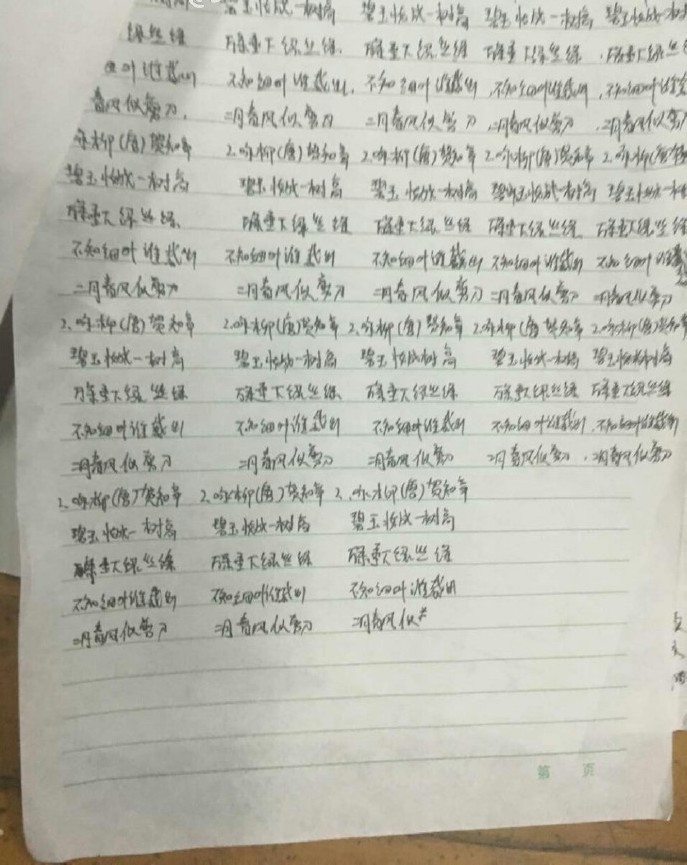 碧玉妆成一树高 碧玉妆成一树高 碧玉妆成一树高 碧玉妆成一树
绿丝绦 万条垂下绿丝绦 万条垂下绿丝绦 万条垂下绿丝绦 万条垂下绿丝
细叶谁裁出 不知细叶谁裁出 不知细叶谁裁出 不知细叶谁裁出 不知细叶谁
春风似剪刀 二月春风似剪刀 二月春风似剪刀 二月春风似剪刀 二月春风似剪刀
咏柳(唐)贺知章 2.咏柳(唐)贺知章 2.咏柳(唐)贺知章 2.咏柳(唐)贺知章 2.咏柳(唐)
碧玉妆成一树高 碧玉妆成一树高 碧玉妆成一树高 碧玉妆成一树高 碧玉妆成一树
万条垂下绿丝绦 万条垂下绿丝绦 万条垂下绿丝绦 万条垂下绿丝绦 万条垂下绿丝绦
不知细叶谁裁出 不知细叶谁裁出 不知细叶谁裁出 不知细叶谁裁出 不知细叶谁裁
二月春风似剪刀 二月春风似剪刀 二月春风似剪刀 二月春风似剪刀 二月春风似剪刀
2.咏柳(唐)贺知章 2.咏柳(唐)贺知章 2.咏柳(唐)贺知章 2.咏柳(唐)贺知章 2.咏柳(唐)贺知章
碧玉妆成一树高 碧玉妆成一树高 碧玉妆成树高 碧玉妆成一树高 碧玉妆成树高
万条垂下绿丝绦 万条垂下绿丝绦 万条垂下绿丝绦 万条垂下绿丝绦 万条垂下绿丝绦
不知细叶谁裁出 不知细叶谁裁出 不知细叶谁裁出 不知细叶谁裁出 不知细叶谁裁出
二月春风似剪刀 二月春风似剪刀 二月春风似剪刀 二月春风似剪刀 二月春风似剪刀
2.咏柳(唐)贺知章 2.咏柳(唐)贺知章 2.咏柳(唐)贺知章
碧玉妆成一树高 碧玉妆成一树高 碧玉妆成一树高
万条垂下绿丝绦 万条垂下绿丝绦 万条垂下绿丝绦
不知细叶谁裁出 不知细叶谁裁出 不知细叶谁裁出
二月春风似剪刀 二月春风似剪刀 二月春风似
第 页